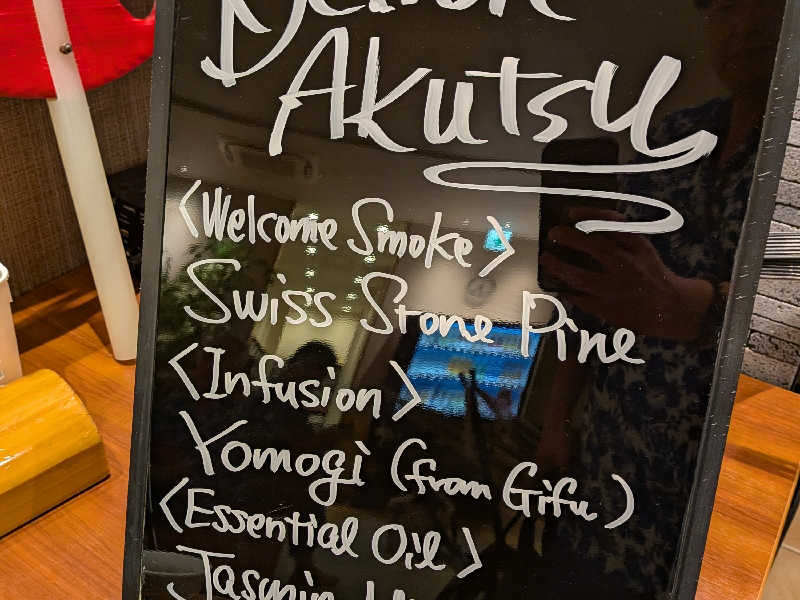 Akutsu
<Welcome Smoke>
Swiss Stone Pine
<Infusion>
Yomogi (from Gifu)
<Essential Oil>
Jasmin